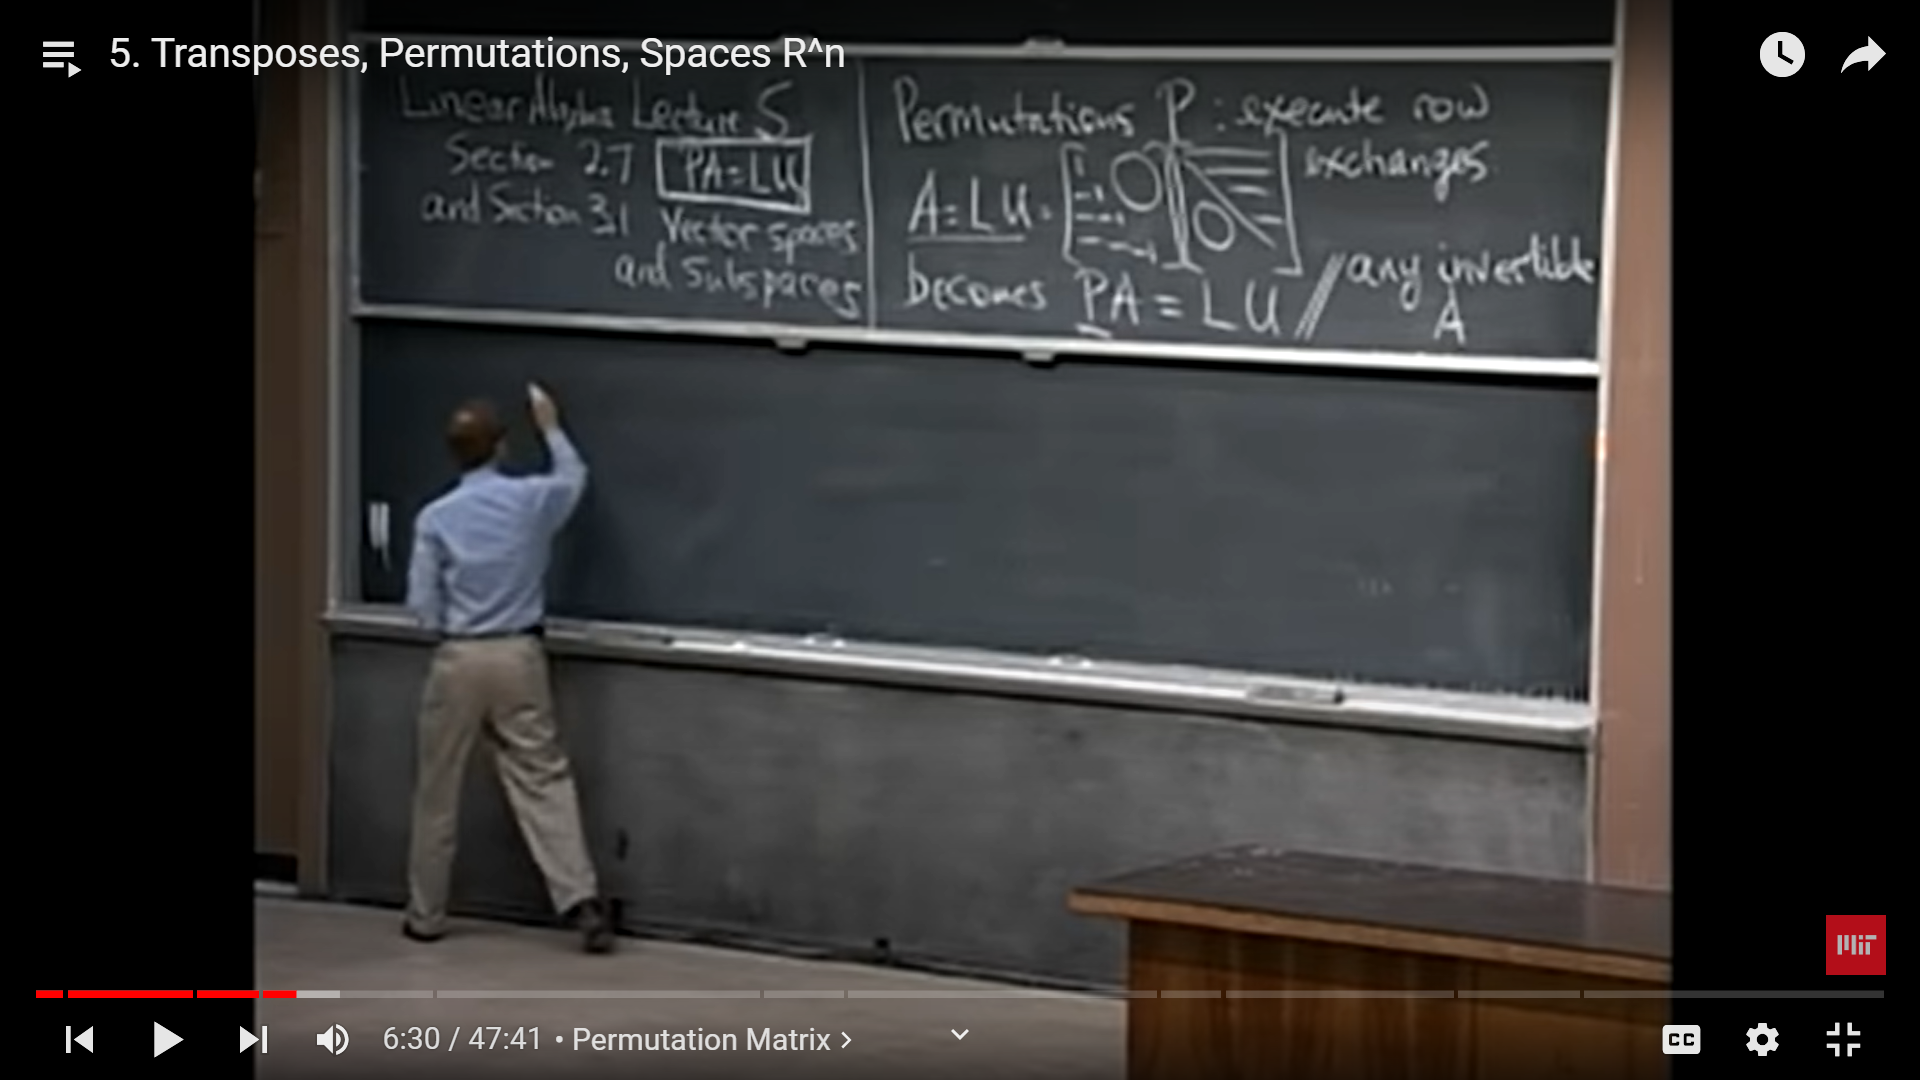 5. Transposes, Permutations, Spaces R^n
Linear Algebra Lecture 5
Section 2.7 PA=LU
and Section 3.1 Vector spaces
and Subspaces
Permutations P : execute row
exchanges.
A=LU=
becomes PA = LU // any invertible
A
MIT
6:30 / 47:41 • Permutation Matrix >
CC